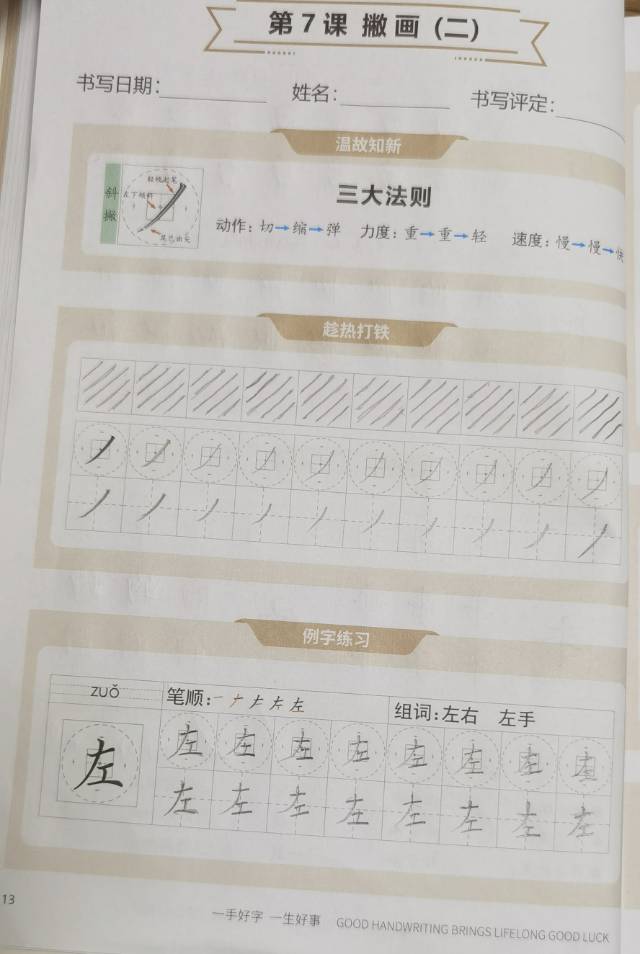 第7课 撇画 (二)
书写日期: 姓名: 书写评定:
温故知新
斜撇
三大法则
动作: 切→缩→弹 力度: 重→重→轻 速度: 慢→慢→快
趁热打铁
例字练习
zuǒ 笔顺: 一ナ左左左 组词: 左右 左手
左 左 左 左 左 左 左 左 左
左 左 左 左 左 左 左 左
13
一手好字 一生好事 GOOD HANDWRITING BRINGS LIFELONG GOOD LUCK